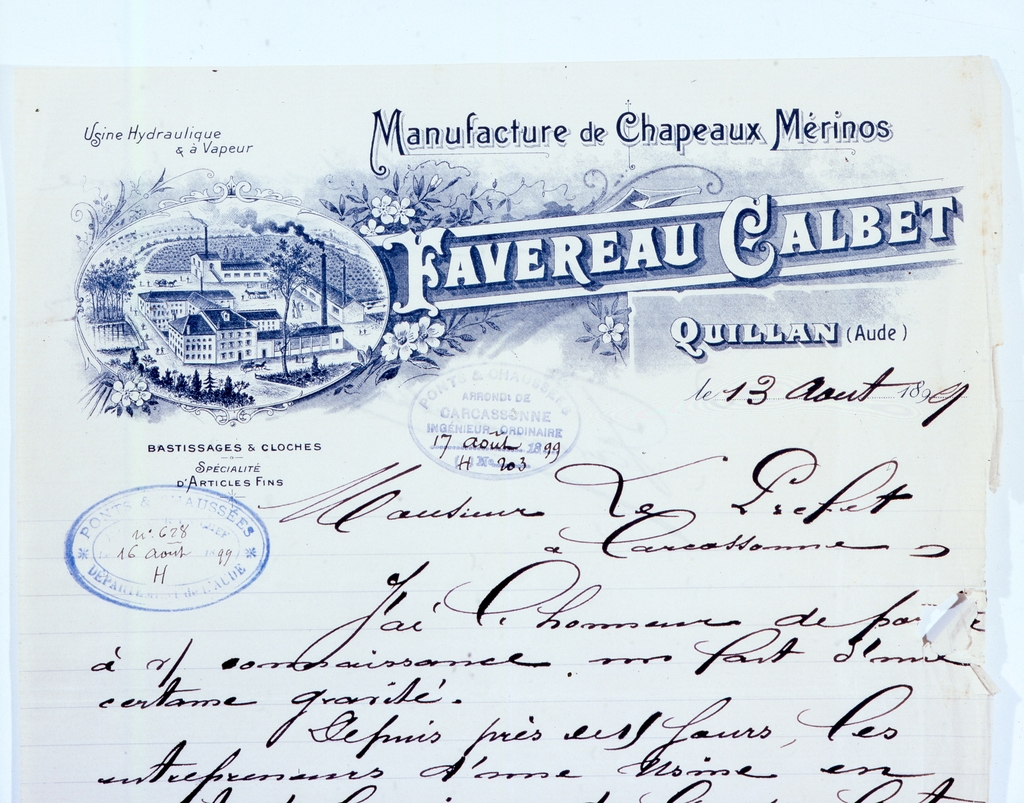 Usine Hydraulique
& à Vapeur
Manufacture de Chapeaux Mérinos
FAVEREAU CALBET
QUILLAN (Aude)
le 13 aout 1899
PONTS & CHAUSSÉES
ARRONDt DE
CARCASSONNE
INGÉNIEUR ORDINAIRE
17 août 1899
H No 203
BASTISSAGES & CLOCHES
SPÉCIALITÉ
D'ARTICLES FINS
PONTS & CHAUSSÉES
n°. 628
16 août 1899
H
DÉPARTEMENT de L'AUDE
Monsieur Le Prefet
a Carcassonne
J'ai l'honneur de
à v/ connaissance un fait d'une
certaine gravité.
Depuis près de jours, les
entrepreneurs d'une Usine en